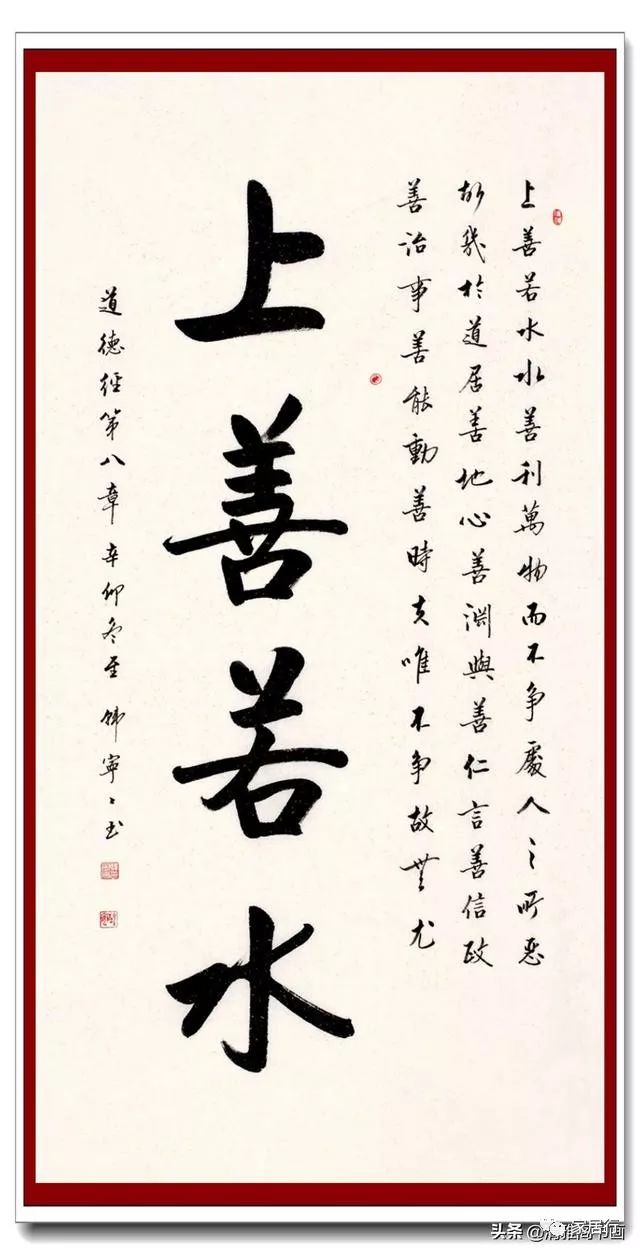 上善若水水善利萬物而不争處人之所惡
故幾於道居善地心善淵與善仁言善信政
善治事善能動善時夫唯不争故無尤
上善若水
道德經第八章 辛卯冬至 韩寧〻书
头条 @书画
家居行